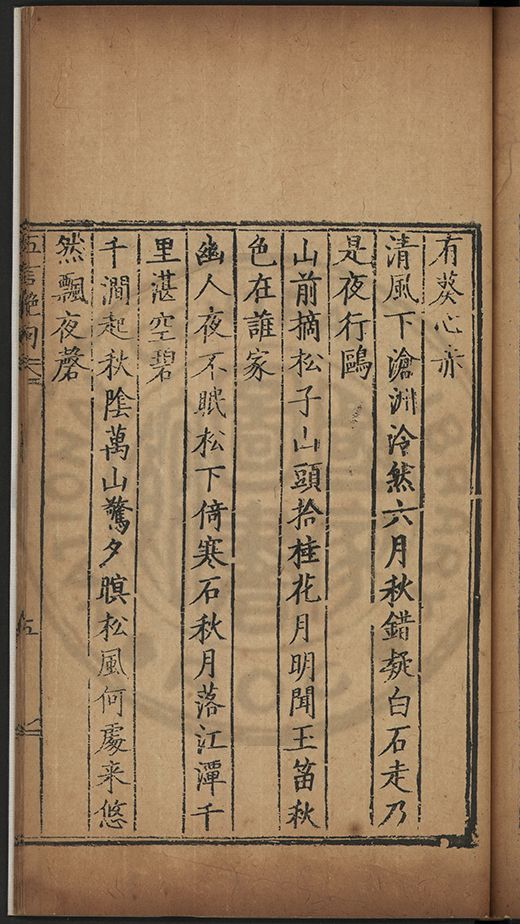 有葵心亦
清風下滄洲泠然六月秋錯疑白石走乃
是夜行鷗
山前摘松子山頭拾桂花月明聞玉笛秋
色在誰家
幽人夜不眠松下倚寒石秋月落江潭千
里湛空碧
千澗起秋陰萬山驚夕暝松風何處来悠
然飄夜磬
五言絶句